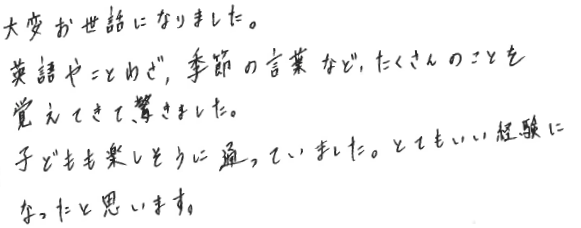 大変お世話になりました。
英語やことわざ,季節の言葉など,たくさんのことを
覚えてきて、驚きました。
子どもも楽しそうに通っていました。とてもいい経験に
なったと思います。